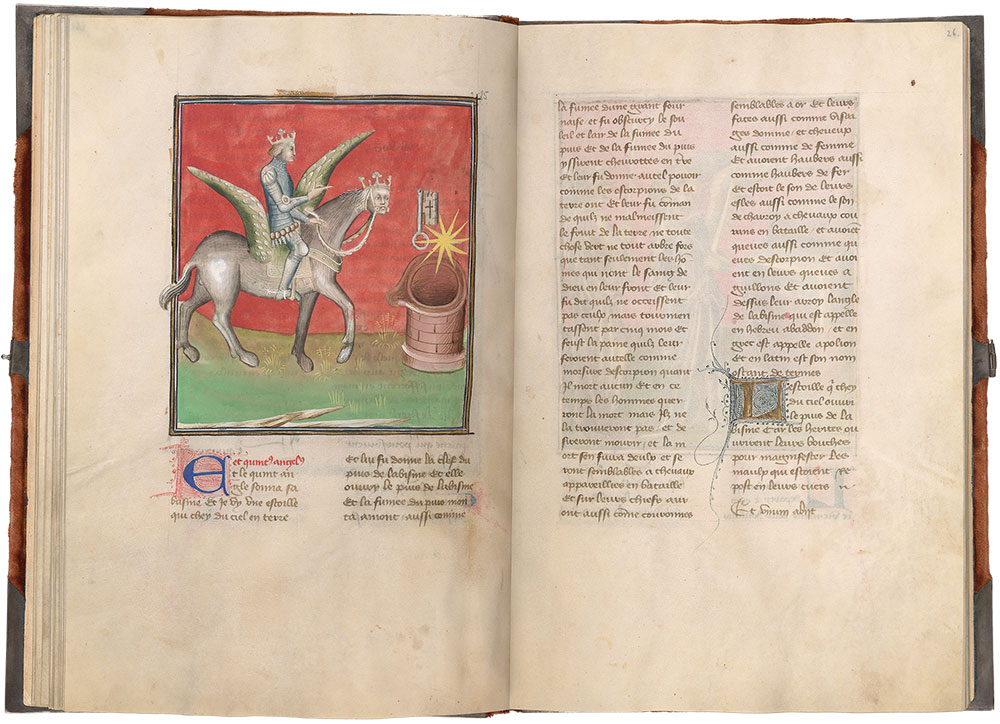 Et quint angel
Et le quint an
gle sonna sa
buisine et je vy une estoille
qui chey du ciel en terre
et luy fu donne la clef du
puis de labisme et elle
ouvry le puis de labisme
et la fumee du puis mon
ta amont aussi comme
26.
la fumee dune grant four
naise et fu obscurcy le so
leil et lair de la fumee du
puis et de la fumee du puis
yssirent
et leur fu donne autel povoir
comme les escorpions de la
terre ont et leur fu coman
de quilz ne malmeissent
le fruit de la terre ne toute
chose vert ne tout arbre fors
que tant seulement les hõ
mes qui nont le saing de
dieu en leur front et leur
fu dit quilz ne occeissent
pas ceulz mais tourmen
tassent par cinq mois et
feust la paine quilz leur
feroient autelle comme
morsure descorpion quant
il mort aucun et en ce
temps les hommes quer
ront la mort mais ilz ne
la trouveront pas et de
sireront mourir et la m
ort son fuira deulz et se
ront semblables a chevaux
appareillies en bataille
et sur leurs chiefs aur
ont aussi cõme couronnes
semblables a or et leurs
faces aussi comme
domme et cheveux
aussi comme de femme
et avoient haubers aussi
comme haubers de fer
et estoit le son de leurs
elles aussi comme le son
de charroy a chevaux cou
rans en bataille et avoient
queues aussi comme qu
eues descorpion et avoi
ent en leurs queues a
guillons et avoient
dessus leur a roy langle
de labisme qui est appelle
en hebreu abaddon et en
grec est appelle apolion
et en latin est son nom
La estoille q chey
du ciel ouvri
le puis de la
bisme car les herites ou
vrirent leurs bouches
pour magnifester les
maulx qui estoient re
post en leurs cuers
Et unum abiit